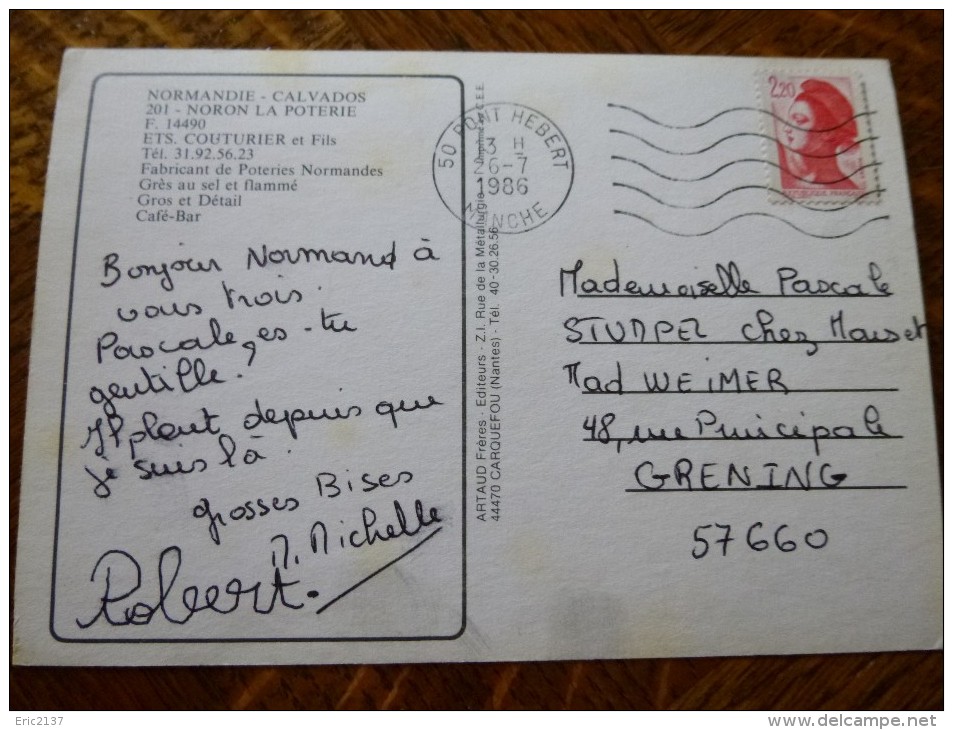 NORMANDIE - CALVADOS
201 - NORON LA POTERIE
F. 14490
ETS. COUTURIER et Fils
Tél. 31.92.56.23
Fabricant de Poteries Normandes
Grès au sel et flammé
Gros et Détail
Café-Bar
Bonjour Normand à
vous trois.
Pascale, es-tu
gentille?
Il pleut depuis que
je suis là.
grosses Bises
M. Michelle
Robert.
ARTAUD Frères - Editeurs - Z.I. Rue de la Métallurgie
44470 CARQUEFOU (Nantes) - Tél. 40-30.26.56
50 PONT HEBERT
13 H
26-7
1986
MANCHE
2,20
Mademoiselle Pascale
STUMPEL chez Mr et
Mad WEIMER
48, rue Principale
GRENING
57660
Eric2137
www.delcampe.net